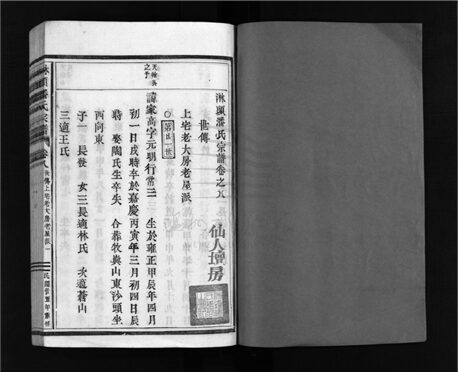 淋頭潘氏宗譜卷之八
世傳
上宅老大房老屋派
仙人壇房
○第廿一世
天輪長之子
諱家高字元明行常三 生於雍正甲辰年四月
初一日戌時卒於嘉慶丙寅年三月初四日辰
時 娶陶氏生卒失 合葬牧奧山東沙頭坐
西向東
子一 長發 女三長適林氏 次適蒼山
三適王氏
淋頭潘氏宗譜 卷八 世傳上宅老大房老屋派 一
民國廿五年重修